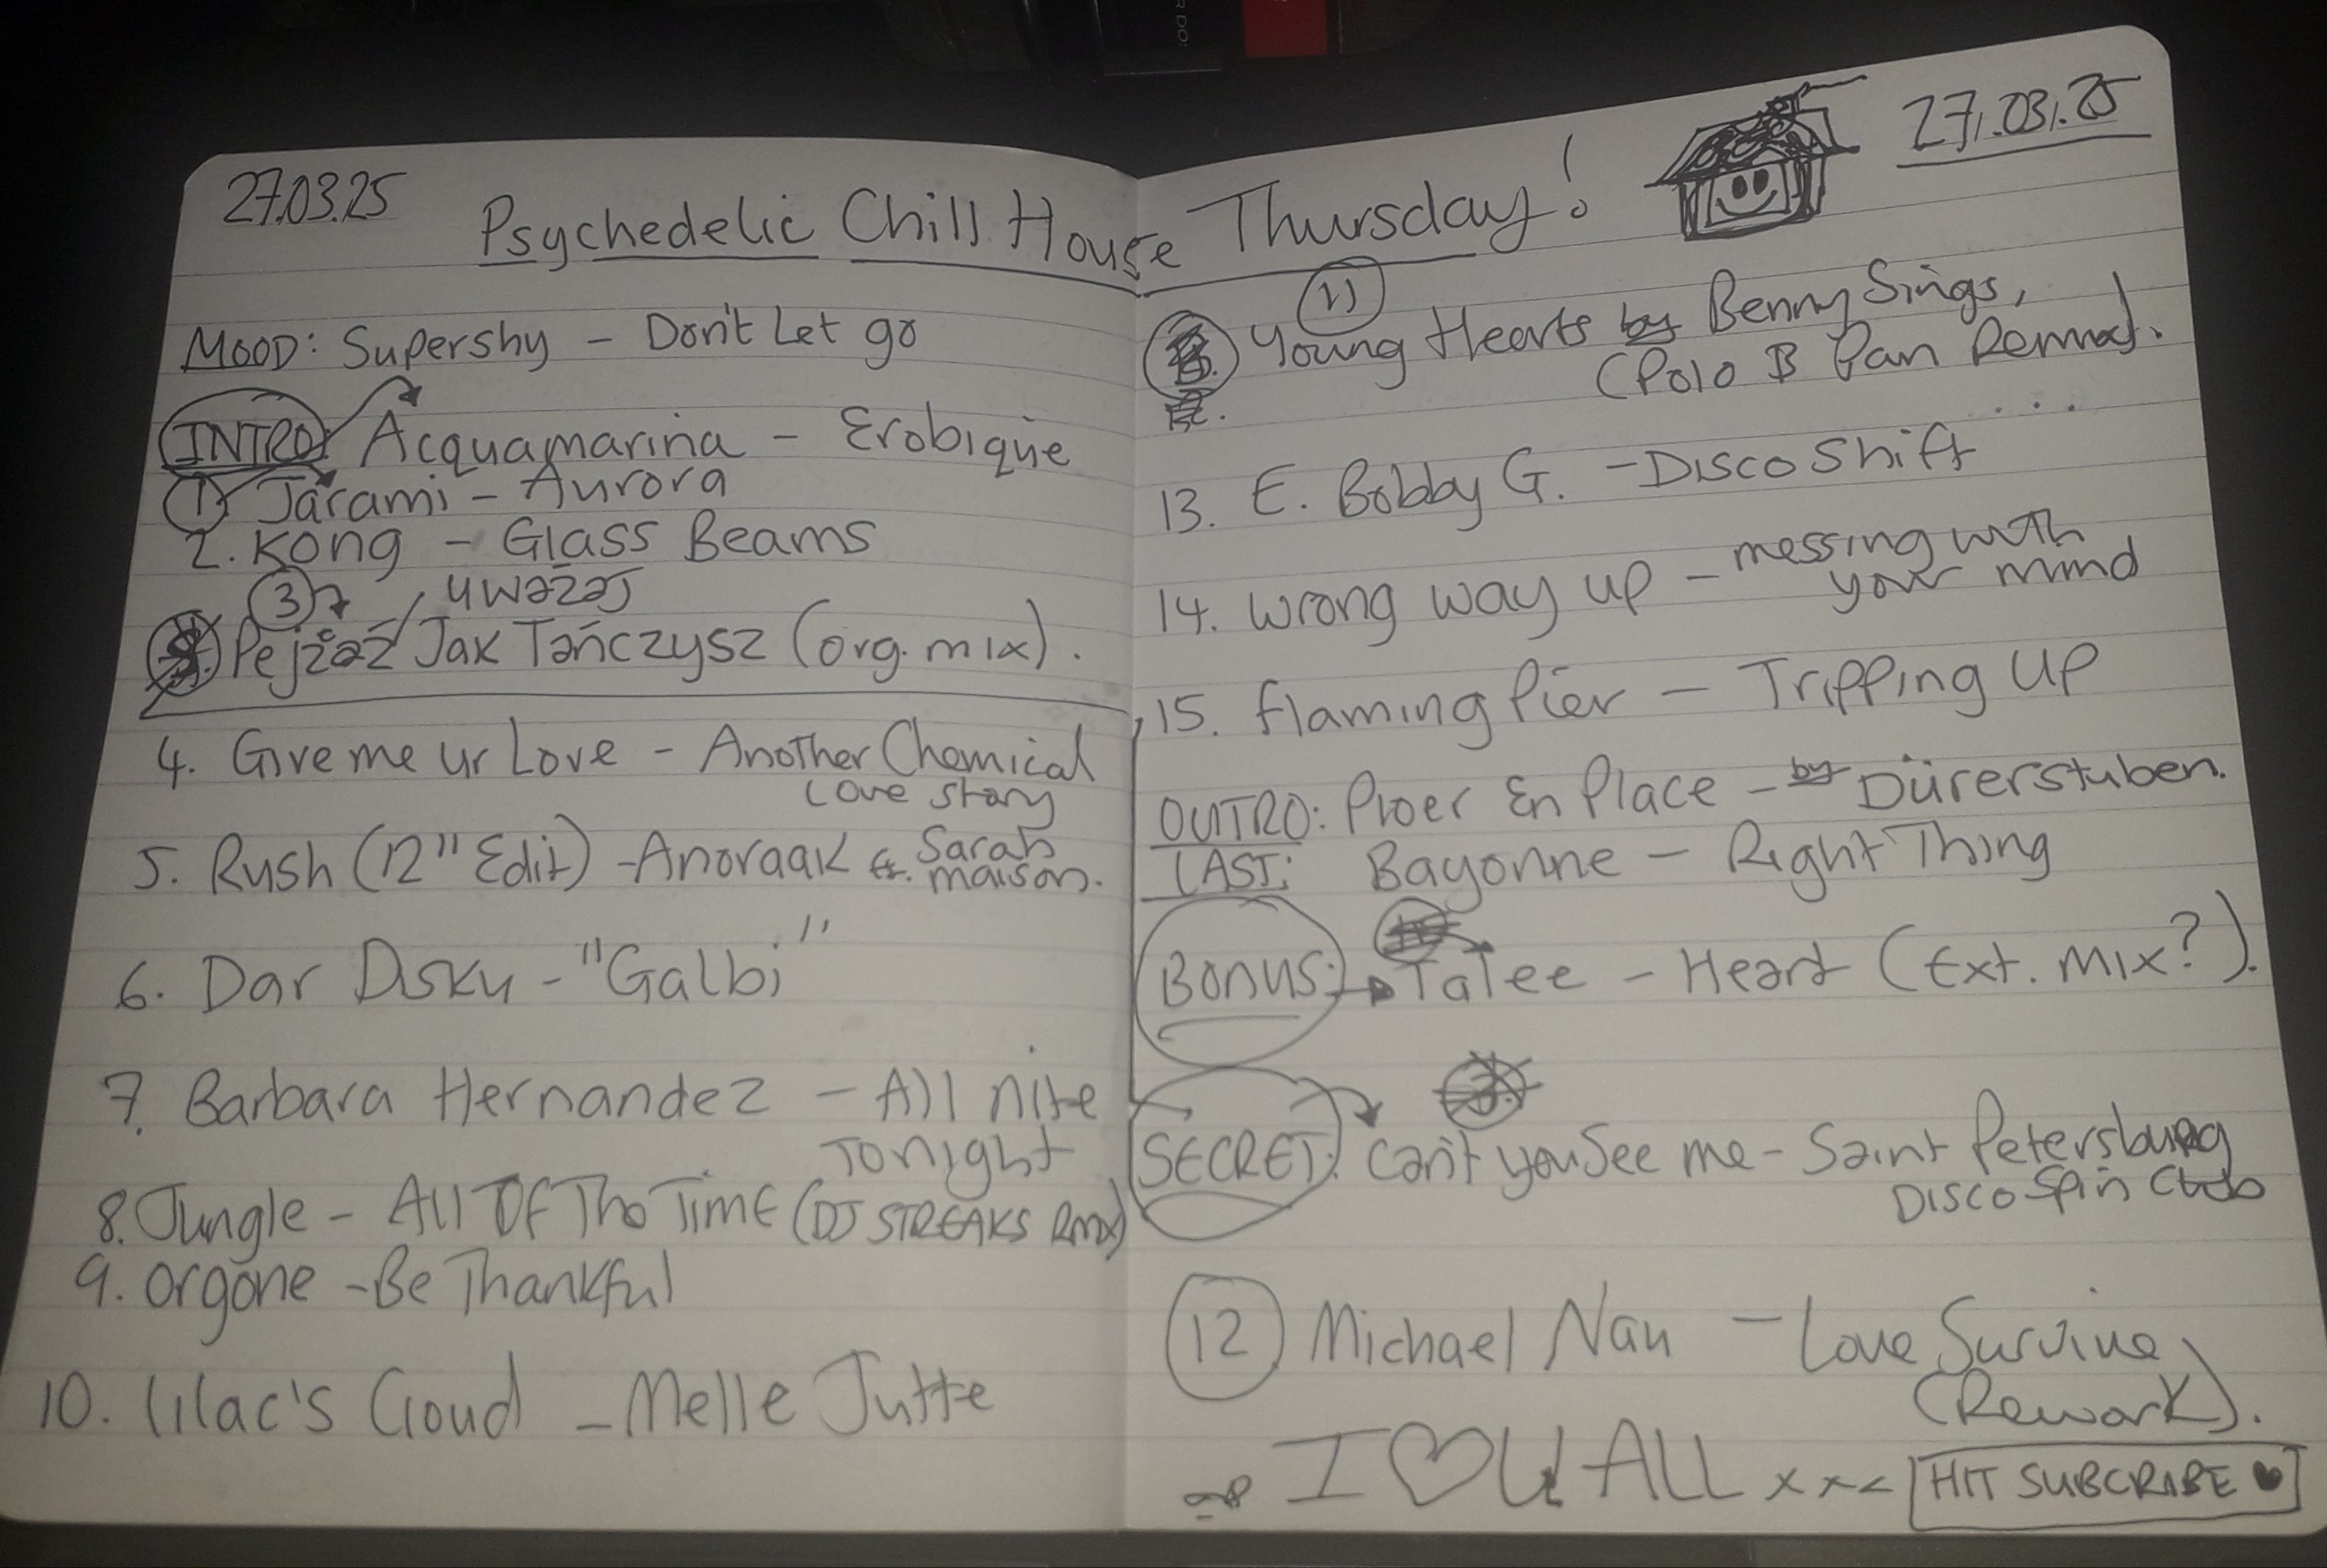 27.03.25
Psychedelic Chill House Thursday!
27.03.25
MOOD: Supershy - Don't Let go
INTRO: Acquamarina - Erobique
1) Jarami - Aurora
2. Kong - Glass Beams
3) uważaj
Pejzaż / Jak Tańczysz (org. mix).
4. Give me ur Love - Another Chemical
Love story
5. Rush (12" Edit) - Anoraak ft. Sarah
maison.
6. Dar Disku - "Galbi"
7. Barbara Hernandez - All nite
Tonight
8. Jungle - All Of The Time (DJ STREAKS Rmx)
9. Orgōne - Be Thankful
10. Lilac's Cloud - Melle Jutte
11
Young Hearts by Benny Sings,
(Polo & Pan Remix).
13. E. Bobby G. - Disco Shift
14. Wrong way up - messing with
your mind
15. Flaming Pier - Tripping Up
OUTRO: Ploer En Place - by Dürerstuben.
LAST: Bayonne - Right Thing
BONUS: Talee - Heart (Ext. mix?).
SECRET: Can't you See me - Saint Petersburg
Disco Spin Club
12 Michael Nau - Love Survive
(Rework).
I ♡ U ALL xxx
HIT SUBCRABE ♥